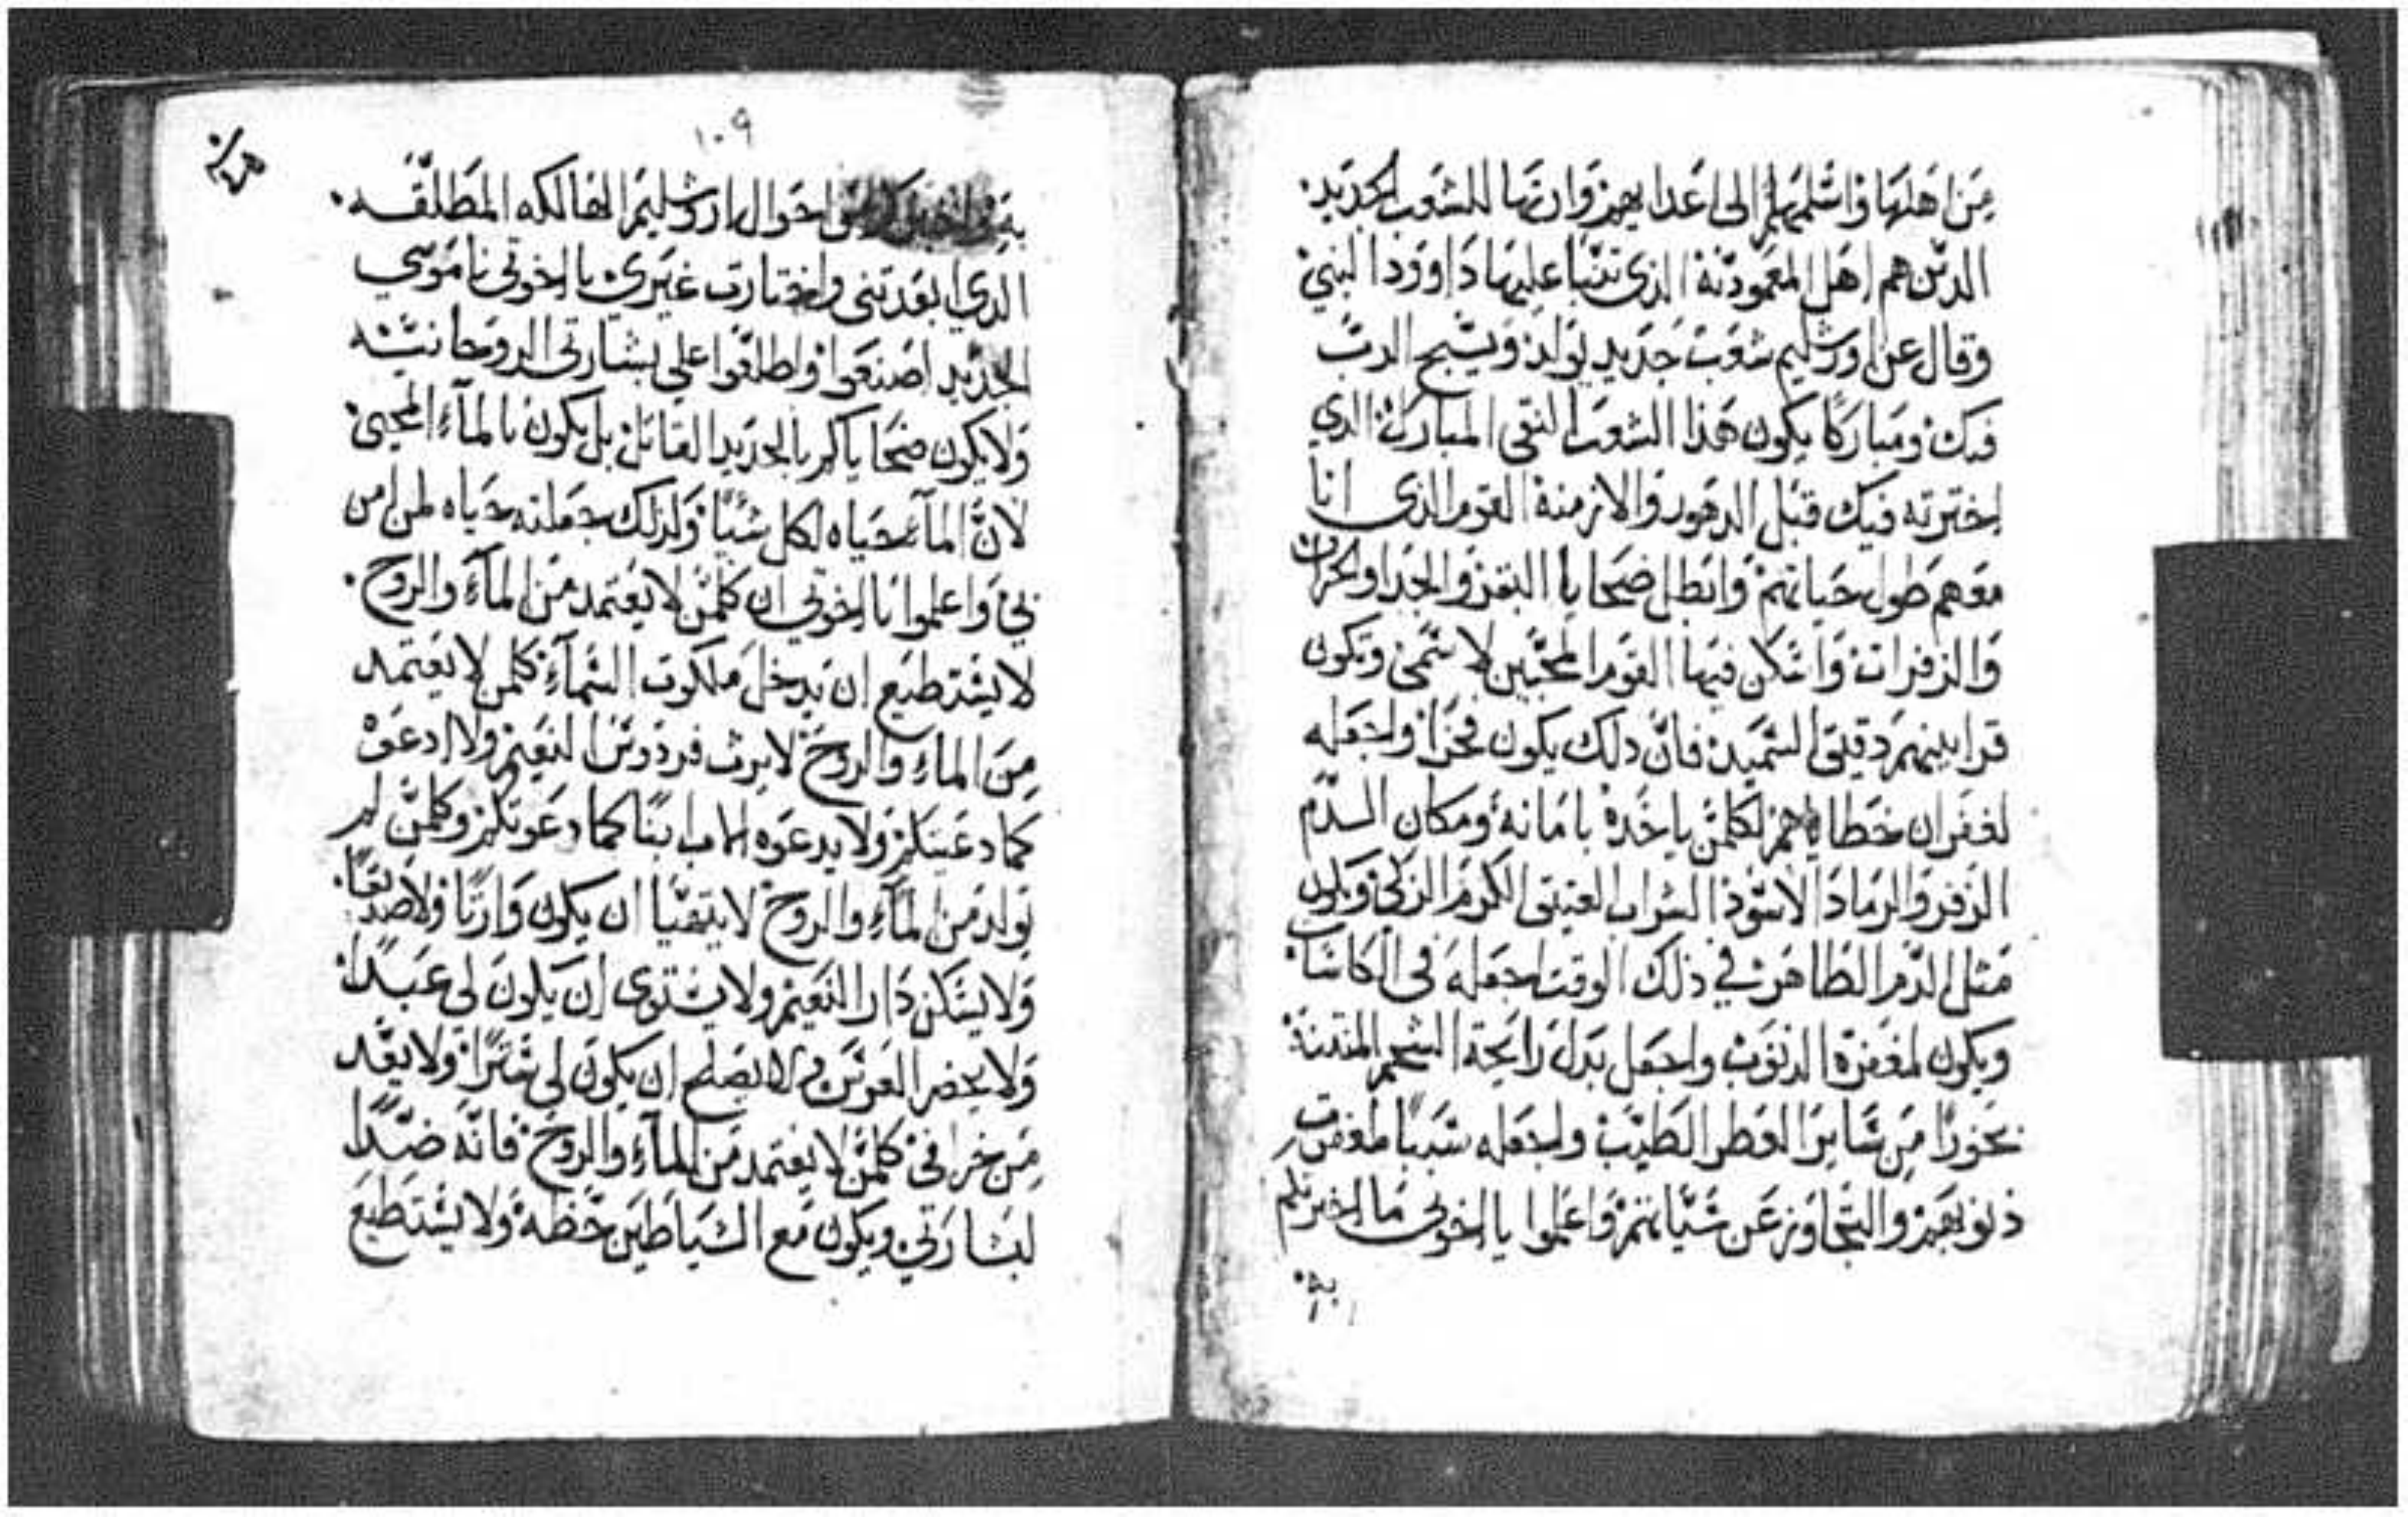 من اهلها واسلمهم الى اعدايهم وارثها للشعب الجديد.
الدين هم اهل المعمودية الذى تنبا عليها داوود النبي
وقال عن اورشليم شعب جديد يولد ويسبح الرب
فيك ومباركا يكون هذا الشعب النقى المبارك الدي
اخترته فيك قبل الدهور والازمنة القوم الذى انا
معهم طول حياتهم وابطل ضحايا البقر والجدا والخراف
والزفرات واسكن فيها القوم المحبين لاسمى ويكون
قرابينهم دقيق السميد فان دلك يكون فخرا واجعله
لغفران خطاياهم لكلمن ياخده بامانة ومكان الدم
الزفر والرماد الاسود الشراب العتيق الكرم الزكي ويكون
مثل الدم الطاهر في ذلك الوقت اجعله فى الكاسات
ويكون لمغفرة الدنوب واجعل بدل رايحة الشحم المنتنة
بخورا من ساير العطر الطيب واجعله سببا لمغفرت
ذنوبهم والتجاوز عن سياتهم واعلموا يا اخوتى ما اخبرتكم
به
١٠٩
به احوال اورشليم الهالكه المطلقه.
الدي ابعدتنى واختارت غيري يا اخوتى ناموسي
الجديد اصنعوا واطلعوا على بشارتى الروحانيه
ولا يكون ضحاياكم بالحديد القاتل بل يكون بالمآء المحيى
لان المآء حياه لكل شيا ولدلك جعلته حياه لمن امن
بي واعلموا يا اخوتي ان كلمن لا يعتمد من المآء والروح.
لا يستطيع ان يدخل ملكوت السمآء كلمن لا يعتمد
من المآء والروح لا يرث فردوس النعيم ولا ادعوه
كما دعيتكم ولا يدعوه الاب ابنا كما دعوتكم وكلمن لم
يولد من المآء والروح لا يتهيا ان يكون وارثا ولا صديقا.
ولا يسكن دار النعيم ولا يستوى ان يكون لى عبدا.
ولا يحضر العرس ولا يصلح ان يكون لى ولا يعد
من خرافى كلمن لا يعتمد من المآء والروح فانه ضدا
لبشارتي ويكون مع الشياطين حظه ولا يستطيع